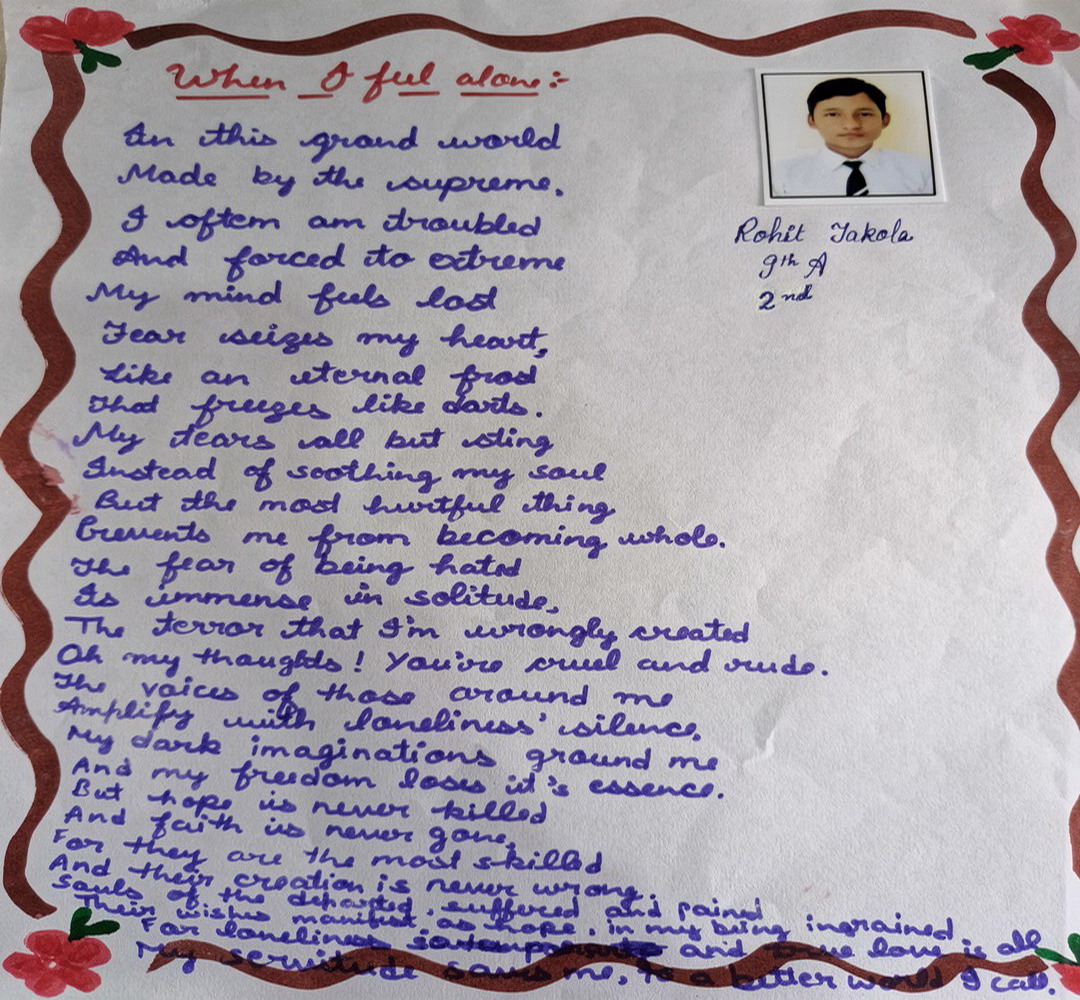 When I feel alone:-
In this grand world
Made by the supreme.
I oftem am troubled
And forced to extreme
My mind feels lost
Fear seizes my heart,
Like an eternal frost
That freezes like darts.
My tears all but sting
Instead of soothing my soul
But the most hurtful thing
Prevents me from becoming whole.
The fear of being hated
Is immense in solitude,
The terror that I'm wrongly created
Oh my thoughts! You're cruel and rude.
The voices of those around me
Amplify with loneliness' silence,
My dark imaginations ground me
And my freedom loses it's essence.
But hope is never killed
And faith is never gone,
For they are the most skilled
And their creation is never wrong.
Souls of the departed, suffered and pained
Their wishes manifest as hope, in my being ingrained
For loneliness is and love is all
My servitude saves me, to a better world I call.
Rohit Takola
9th A
2nd